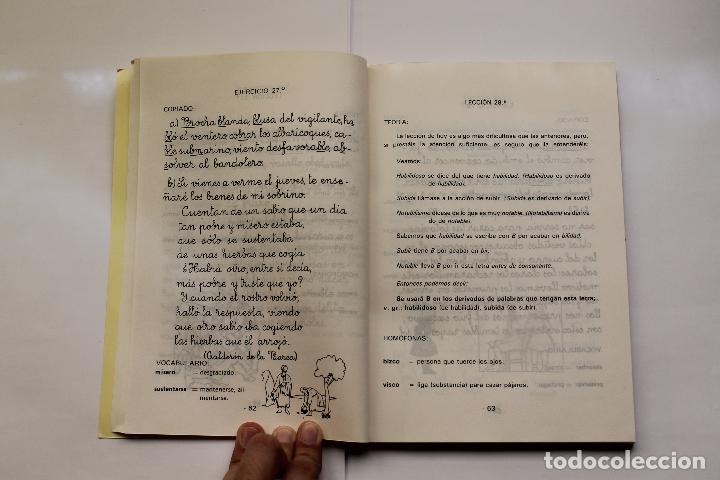 EJERCICIO 27.º
COPIADO:
a) Brocha blanda, blusa del vigilante, ha-
bló el ventero cobrar los albaricoques, ca-
ble submarino, viento desfavorable, ab-
solver al bandolero.
b) Si vienes a verme el jueves, te ense-
ñaré los bienes de mi sobrino.
Cuentan de un sabio que un día
tan pobre y mísero estaba,
que sólo se sustentaba
de unas hierbas que cogía
¿Habrá otro, entre sí decía,
más pobre y triste que yo?
Y cuando el rostro volvió,
halló la respuesta, viendo
que otro sabio iba cogiendo
las hierbas que él arrojó.
(Calderón de la Barca)
VOCABULARIO:
mísero = desgraciado.
sustentarse = mantenerse, ali-
mentarse.
- 62
LECCIÓN 28.ª
TEORIA:
La lección de hoy es algo más dificultosa que las anteriores, pero,
si prestáis la atención suficiente, es seguro que la entenderéis:
Veamos:
Habilidoso se dice del que tiene habilidad. (Habilidoso es derivado
de habilidad).
Subida llámase a la acción de subir. (Subida es derivado de subir).
Notabilísimo dícese de lo que es muy notable. (Notabilísimo es deriva-
do de notable).
Sabemos que habilidad se escribe con B por acabar en bilidad.
Subir tiene B por acabar en bir.
Notable lleva B por ir esta letra antes de consonante.
Entonces podemos decir:
Se usará B en los derivados de palabras que tengan esta letra;
v. gr.: habilidoso (de habilidad), subida (de subir).
HOMÓFONAS:
bizco = persona que tuerce los ojos.
visco = liga (substancia) para cazar pájaros.
- 63
todocoleccion.net